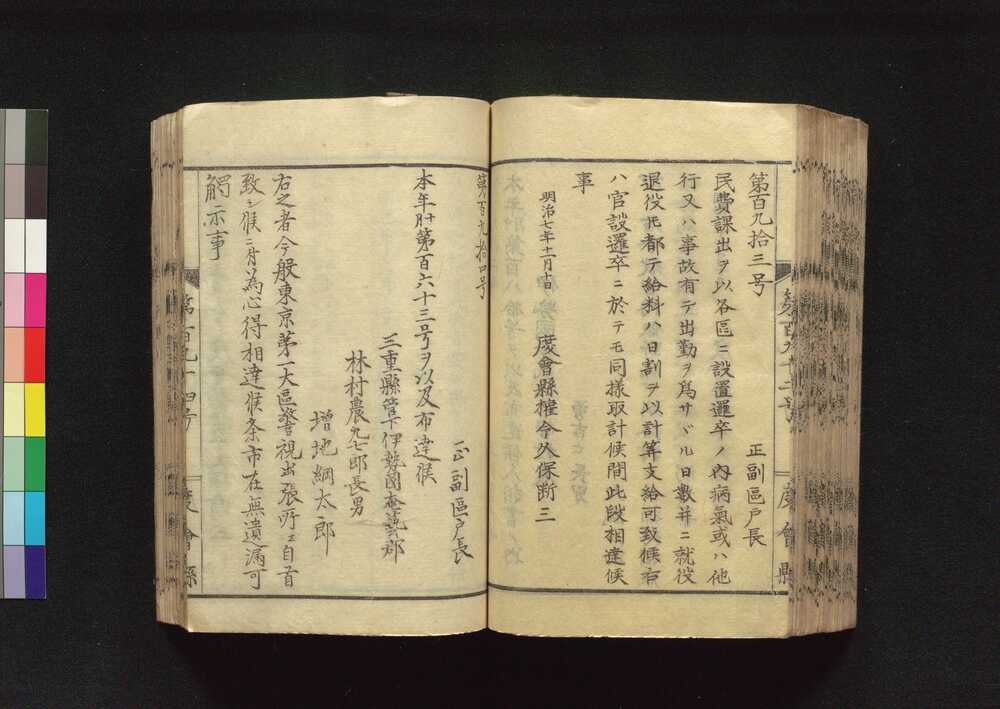 第百九拾三号
正副區戸長
民費課出ヲ以各區ニ設置邏卒ノ内病氣或ハ他
行又ハ事故有テ出勤ヲ為サヾル日數并ニ就役
退役モ都テ給料ハ日割ヲ以計算支給可致候右
ハ官設邏卒ニ於テモ同様取計候間此段相達候
事
明治七年十一月十日
度會縣權令久保断三
第百九拾四号
正副區戸長
本年 第百六十三号ヲ以及布達候
三重縣管下伊勢國奄藝郡
林村農九七郎長男
増地綱太郎
右之者今般東京第一大區警視出張所ェ自首
致シ候ニ付為心得相達候条市在無遺漏可
觸示事
第百九十四号
度會縣
度會縣